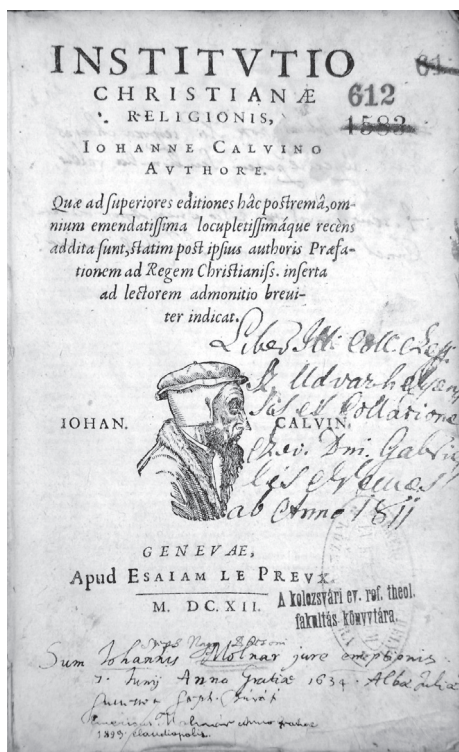 INSTITVTIO
CHRISTIANÆ
RELIGIONIS,
IOHANNE CALVINO
AVTHORE.
612
1583
Quæ ad superiores editiones hâc postremâ, om-
nium emendatissima locupletissimáque recèns
addita sunt, statim post ipsius authoris Præfa-
tionem ad Regem Christianiss. inserta
ad lectorem admonitio brevi-
ter indicat.
Liber Ill. Coll.
Udvarhelyen
sis ex Collatione
Rev. Dni. Gabrie
lis
ab Anno 1811
IOHAN. CALVIN.
GENEVAE,
Apud ESAIAM LE PREVX.
M. DC. XII.
A kolozsvári ev. ref. theol.
fakultás könyvtára.
Sum Iohannis Molnar jure emptionis
Junij Anno Gratiæ 1634. Albæ Juliæ
1899 Claudiopolis.